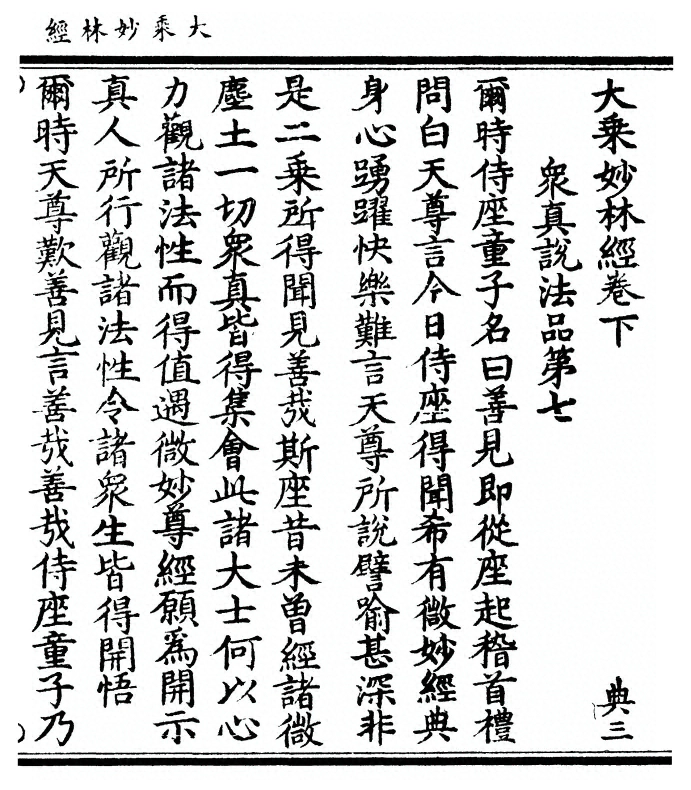 大乘妙林經
大乘妙林經卷下
典三
衆真說法品第七
爾時侍座童子名曰善見即從座起稽首禮
問白天尊言今日侍座得聞希有微妙經典
身心踴躍快樂難言天尊所說譬喻甚深非
是二乘所得聞見善哉斯座昔未曾經諸微
塵土一切衆真皆得集會此諸大士何以心
力觀諸法性而得值遇微妙尊經願爲開示
真人所行觀諸法性令諸衆生皆得開悟
爾時天尊歎善見言善哉善哉侍座童子乃